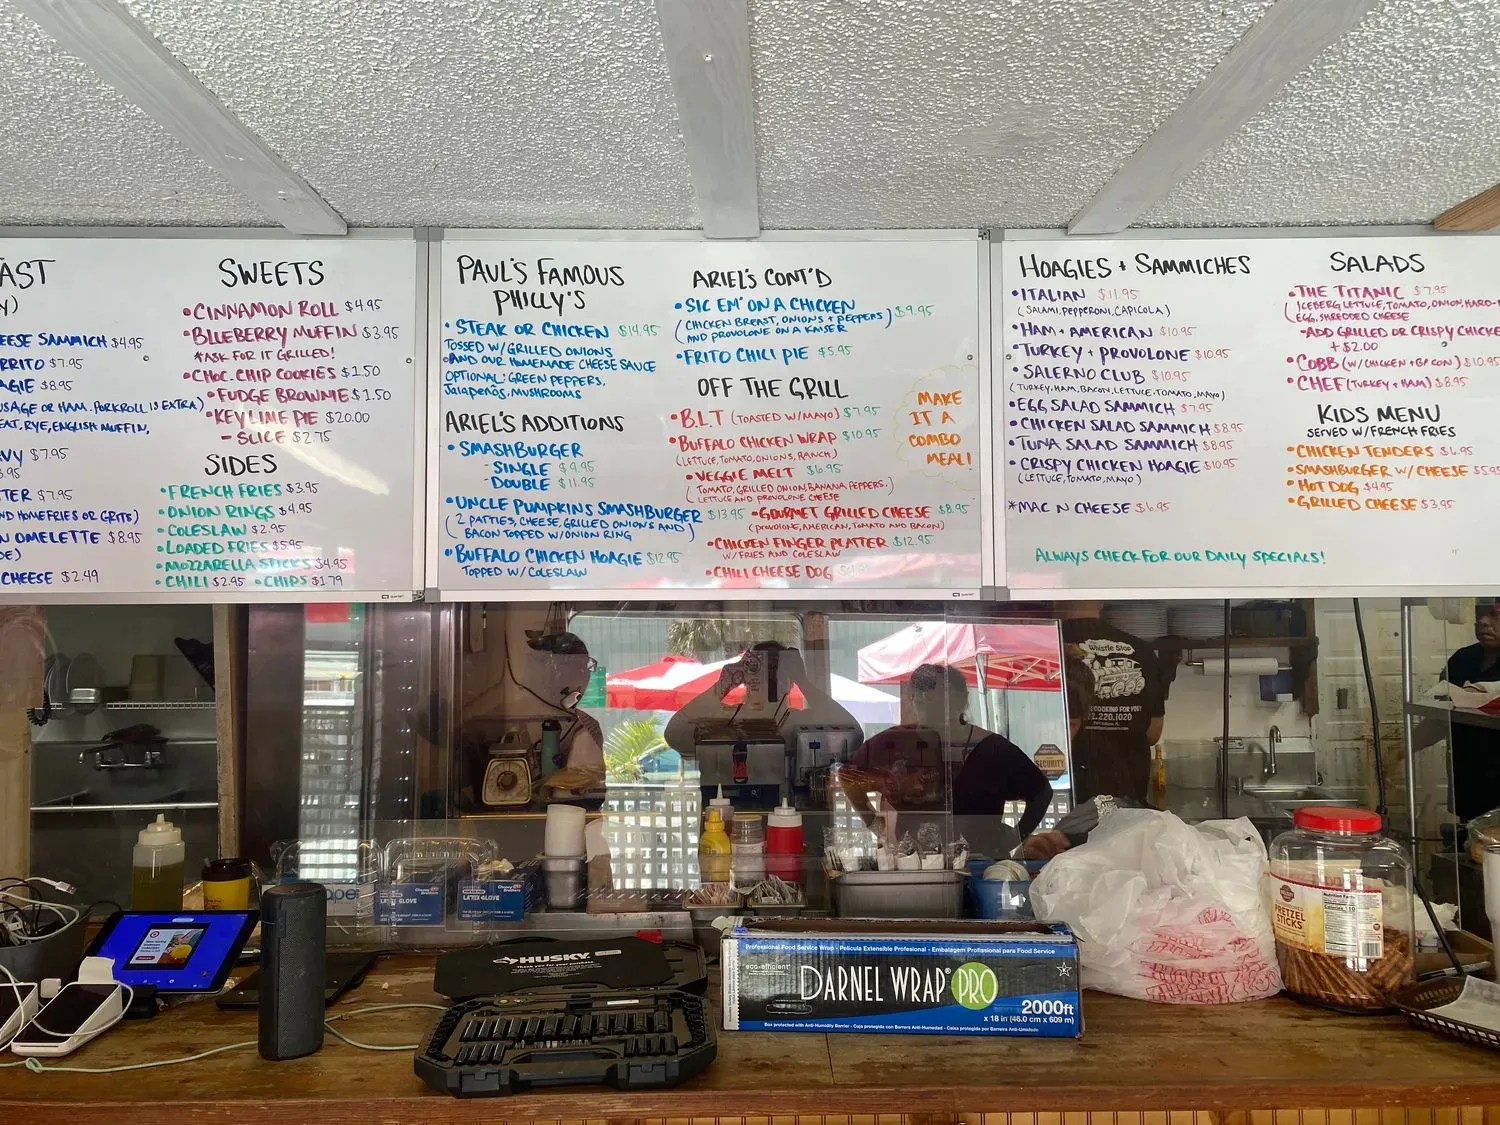 AST
Y)
EESE SAMMICH $4.95
RRITO $7.95
AGIE $8.95
USAGE OR HAM. PORKROLL IS EXTRA)
EAT, RYE, ENGLISH MUFFIN,
VY $7.95
3.95
TER $7.95
ND HOMEFRIES OR GRITS)
N OMELETTE $8.95
DE)
CHEESE $2.49
SWEETS
•CINNAMON ROLL $4.95
•BLUEBERRY MUFFIN $3.95
*ASK FOR IT GRILLED!
•CHOC. CHIP COOKIES $1.50
•FUDGE BROWNIE $1.50
•KEY LIME PIE $20.00
- SLICE $2.75
SIDES
•FRENCH FRIES $3.95
•ONION RINGS $4.95
•COLESLAW $2.95
•LOADED FRIES $5.95
•MOZZARELLA STICKS $4.95
•CHILI $2.95 •CHIPS $1.79
PAUL'S FAMOUS
PHILLY'S
•STEAK OR CHICKEN $14.95
TOSSED W/GRILLED ONIONS
AND OUR HOMEMADE CHEESE SAUCE
OPTIONAL: GREEN PEPPERS,
Jalapeños, MUSHROOMS
ARIEL'S ADDITIONS
•SMASHBURGER
-SINGLE $9.95
-DOUBLE $11.95
•UNCLE PUMPKINS SMASHBURGER $13.95
(2 PATTIES, CHEESE, GRILLED ONIONS AND)
BACON TOPPED W/ONION RING
•BUFFALO CHICKEN HOAGIE $12.95
TOPPED W/COLESLAW
ARIEL'S CONT'D
•SIC EM' ON A CHICKEN $9.95
(CHICKEN BREAST, ONIONS + PEPPERS)
AND PROVOLONE ON A KAISER
•FRITO CHILI PIE $5.95
OFF THE GRILL
•B.L.T (TOASTED W/MAYO) $7.95
•BUFFALO CHICKEN WRAP $10.95
(LETTUCE, TOMATO, ONIONS, RANCH)
•VEGGIE MELT $6.95
(TOMATO, GRILLED ONION, BANANA PEPPERS,
LETTUCE AND PROVOLONE CHEESE
•GOURMET GRILLED CHEESE $8.95
(PROVOLONE, AMERICAN, TOMATO AND BACON)
•CHICKEN FINGER PLATTER $12.95
W/FRIES AND COLESLAW
•CHILI CHEESE DOG
MAKE
IT A
COMBO
MEAL!
HOAGIES + SAMMICHES
•ITALIAN $11.95
(SALAMI, PEPPERONI, CAPICOLA)
•HAM + AMERICAN $10.95
•TURKEY + PROVOLONE $10.95
•SALERNO CLUB $10.95
(TURKEY, HAM, BACON, LETTUCE, TOMATO, MAYO)
•EGG SALAD SAMMICH $7.95
•CHICKEN SALAD SAMMICH $8.95
•TUNA SALAD SAMMICH $8.95
•CRISPY CHICKEN HOAGIE $10.95
(LETTUCE, TOMATO, MAYO)
*MAC N CHEESE $6.95
ALWAYS CHECK FOR OUR DAILY SPECIALS!
SALADS
•THE TITANIC $7.95
(ICEBERG LETTUCE, TOMATO, ONION, HARD-
EGG, SHREDDED CHEESE
-ADD GRILLED OR CRISPY CHICKE
+ $2.00
•COBB (W/CHICKEN + BACON) $10.95
•CHEF (TURKEY + HAM) $8.95
KIDS MENU
SERVED W/FRENCH FRIES
•CHICKEN TENDERS $6.95
•SMASHBURGER W/ CHEESE $5.95
•HOT DOG $4.95
•GRILLED CHEESE $3.95
Whistle Stop
COOKING FOR YOU!
2.220.1020
SECURITY
LATEX GLOVE
LATEX GLOVE
HUSKY
Thank you for your purchase
Professional Food Service Wrap - Película Extensible Profesional - Embalagem Profissional para Food Service
eco-efficient
DARNEL WRAP® PRO
2000ft
x 18 in (46.0 cm x 609 m)
Box protected with Anti-Humidity Barrier - Caja protegida con Barrera Anti-Humedad - Caixa protegida com Barreira Anti-Umidade
PRETZEL
STICKS